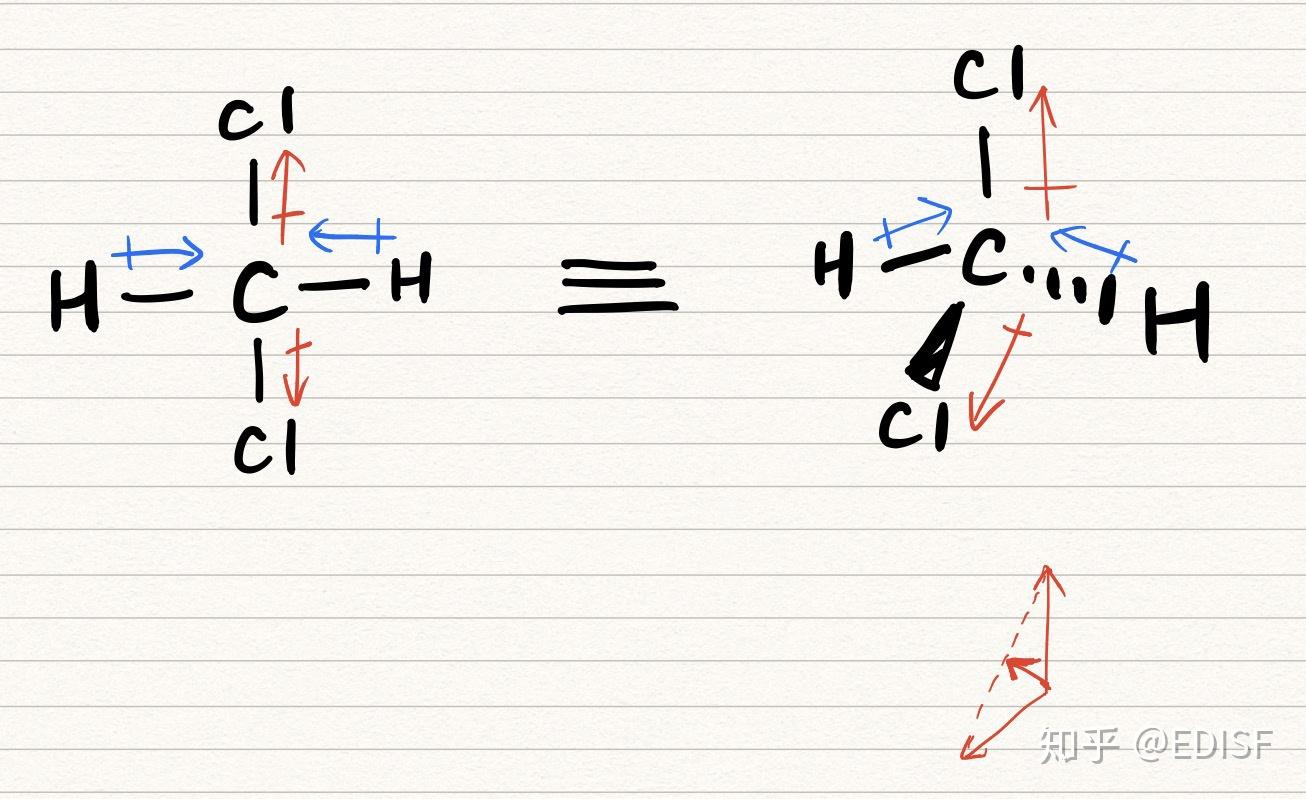 Cl
Cl
H C H
H C H
Cl
Cl
知乎 @EDISF